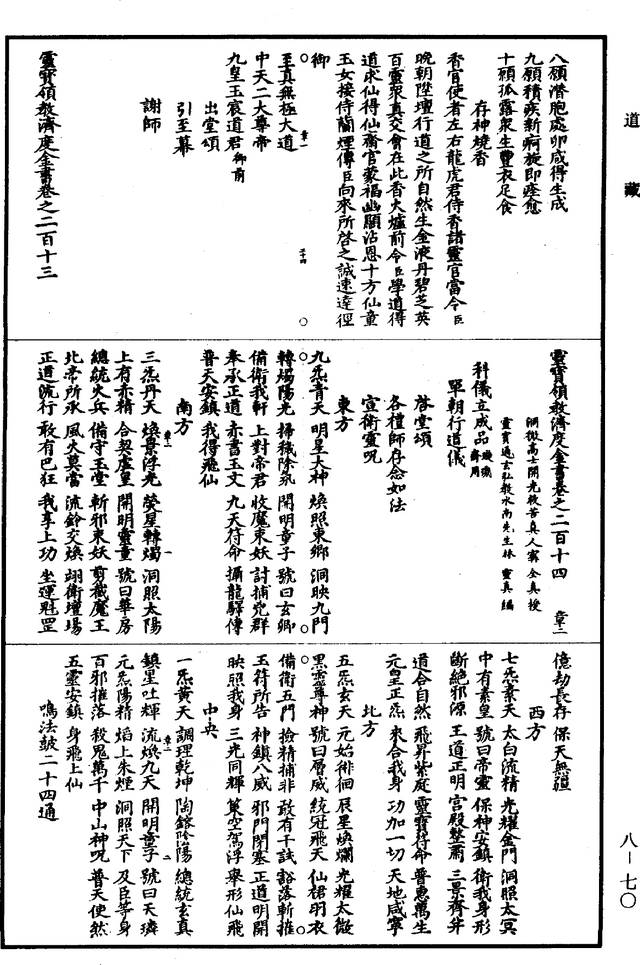 道藏
八願潛胞處卵咸得生成
九願積疾新痾旋即痊愈
十願孤露衆生豐衣足食
存神燒香
香官使者左右龍虎君侍香諸靈官當令臣
晚朝陞壇行道之所自然生金液丹碧芝英
百靈衆真交會在此香火爐前令臣學道得
道求仙得仙齋官蒙福幽顯沾恩十方仙童
玉女接侍蘭煙傳臣向來所啓之誠速達徑
御
至真無極大道
中天二大尊帝
九皇玉宸道君御前
出堂頌
引至幕
謝師
靈寶領教濟度金書卷之二百十三
靈寶領教濟度金書卷之二百十四 章二
洞微高士開光救苦真人甯全真授
靈寶通玄弘教水南先生林靈真編
科儀立成品
單朝行道儀
啓堂頌
各禮師存念如法
宣衛靈呪
東方
九炁青天 明星大神 煥照東鄉 洞映九門
轉燭陽光 掃穢除氛 開明童子 號曰玄卿
備衛我軒 上對帝君 收魔束妖 討捕兇群
奉承正道 赤書玉文 九天符命 攝龍驛傳
普天安鎮 我得飛仙
南方
三炁丹天 煥景浮光 熒星轉燭 洞照太陽
上有赤精 合契虛皇 開明靈童 號曰華房
總統火兵 備守玉堂 斬邪束妖 剪截魔王
北帝所承 風火莫當 流鈴交煥 翊衛壇場
正道流行 敢有巴狂 我享上功 坐運魁罡
億劫長存 保天無疆
西方
七炁素天 太白流精 光耀金門 洞照太冥
中有素皇 號曰帝靈 保神安鎮 衛我身形
斷絕邪源 王道正明 宮殿整肅 三景齊并
道合自然 飛昇紫庭 靈寶符命 普惠萬生
元皇正炁 來合我身 功加一切 天地咸寧
北方
五炁玄天 元始徘徊 辰星煥爛 光耀太微
黑靈尊神 號曰層威 統冠飛天 仙裙羽衣
備衛五門 撿精捕非 敢有干試 豁落斬摧
玉符所告 神鎮八威 邪門閉塞 正道明開
映照我身 三光同輝 策空駕浮 舉形仙飛
中央
一炁黃天 調理乾坤 陶鎔陰陽 總統玄真
鎮星吐輝 流煥九天 開明童子 號曰天璘
元炁陽精 焰上朱煙 洞照天下 及臣等身
百邪摧落 殺鬼萬千 中山神呪 普天使然
五靈安鎮 身飛上仙
鳴法鼓二十四通
八—七〇